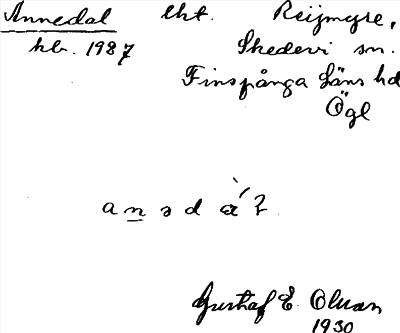 Annedal lht. Reijmyre,
hb. 1987 Skedevi sn.
Finspånga läns hd
Ögl
a n ə d
Gustaf E Olsson
1930